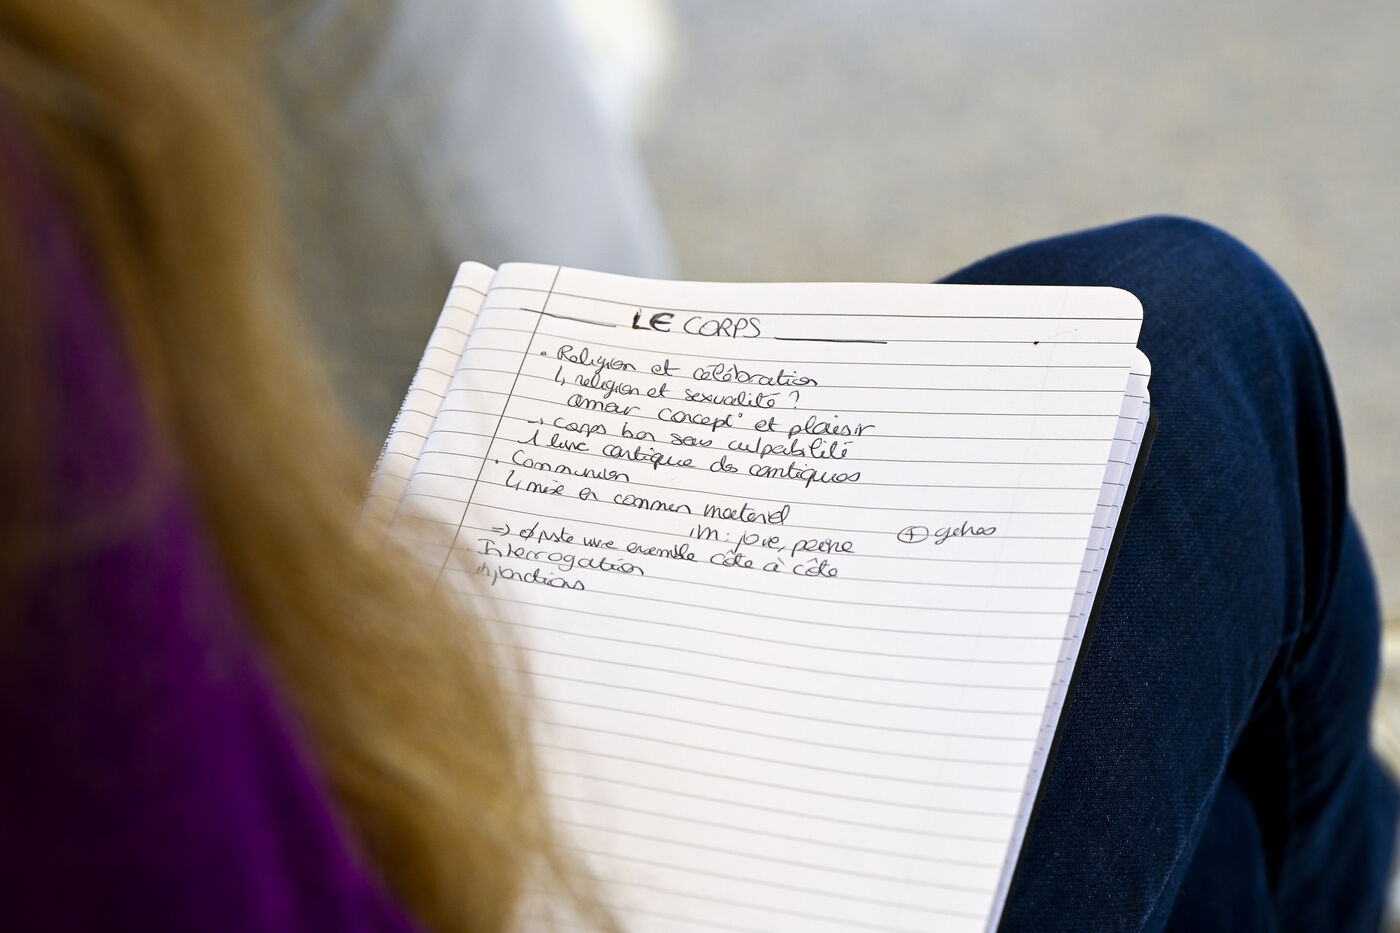 LE CORPS
. Religion et célébration
↳ religion et sexualité ?
amour concept° et plaisir
→ corps bon sans culpabilité
1 livre cantique des cantiques
. Communion
↳ mise en commun matériel
im: joie, peine ⊕ gehos
=> ø juste vivre ensemble côte à côte
Interrogation
injonctions